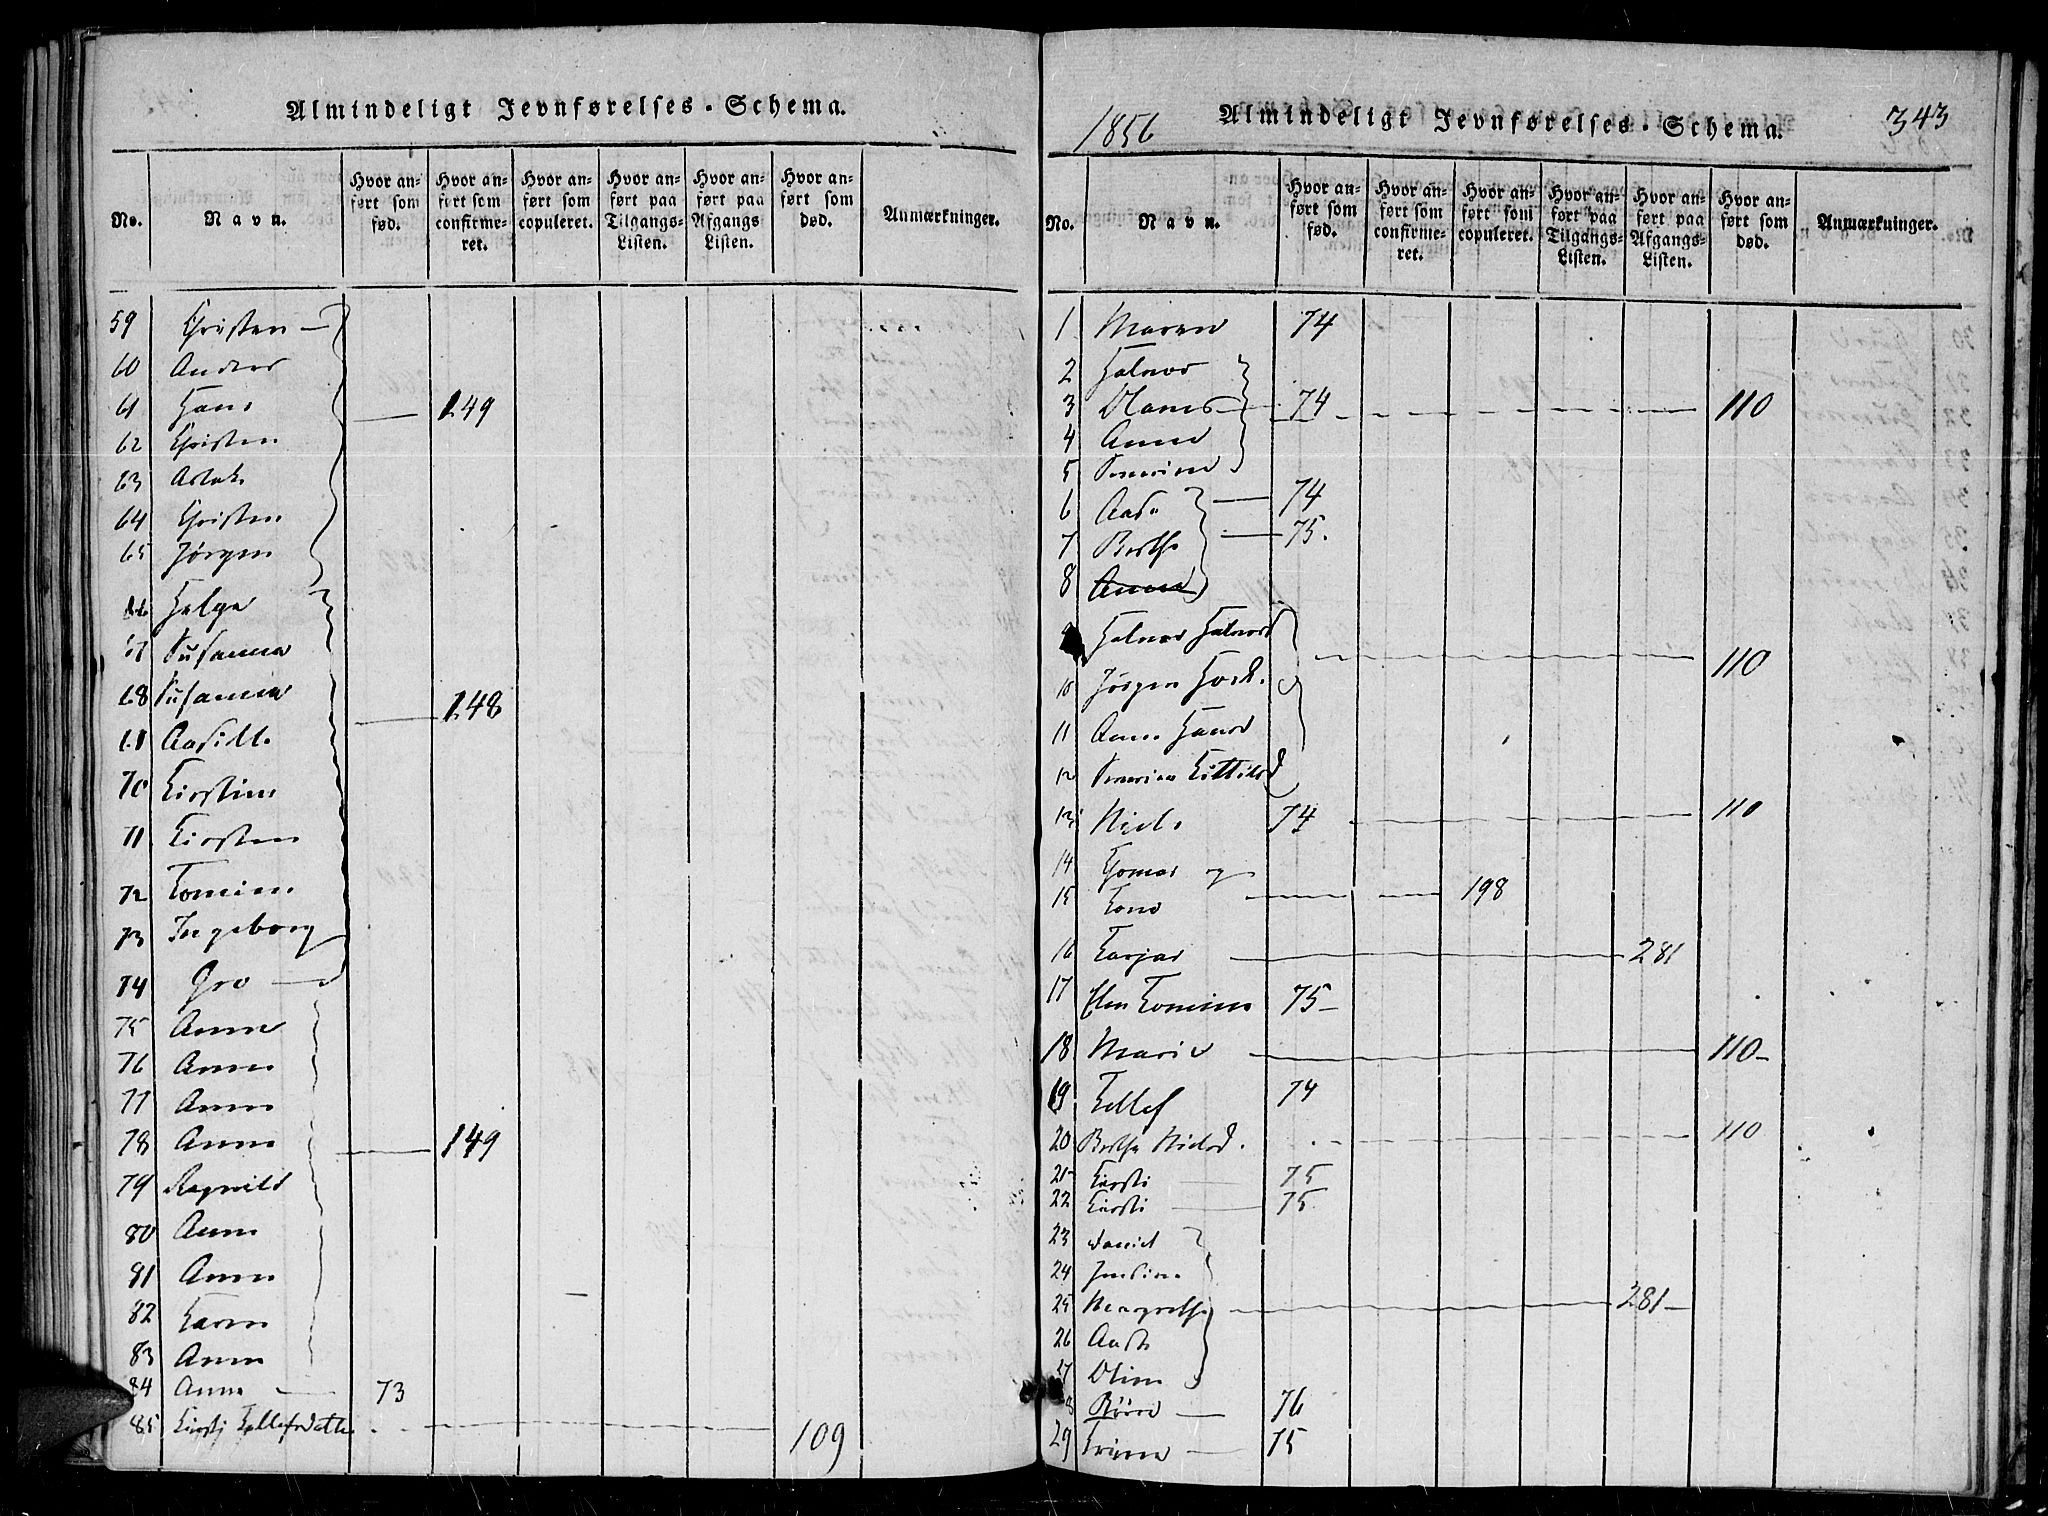 Almindeligt Jevnførelses-Schema.
No.
Navn.
Hvor anført som fød.
Hvor anført som confirmeret.
Hvor anført som copuleret.
Hvor anført paa Tilgangs-Listen.
Hvor anført paa Afgangs Listen.
Hvor anført som død.
Anmærkninger.
59 Christen
60 Anders
61 Hans 149
62 Christen
63 Aslak
64 Christen
65 Jørgen
66 Helge
67 Susanna
68 Susanna 148
69 Aasill
70 Kirstine
71 Kirsten
72 Tomine
73 Ingeborg
74 Gro
75 Anne
76 Anne
77 Anne
78 Anne 149
79 Ragnild
80 Anne
81 Anne
82 Karen
83 Anne
84 Anne 73
85 Kirsti Tellefsdatter 109
1856 Almindeligt Jevnførelses-Schema. 343
No.
Navn.
Hvor anført som fød.
Hvor anført som confirmeret.
Hvor anført som copuleret.
Hvor anført paa Tilgangs-Listen.
Hvor anført paa Afgangs-Listen.
Hvor anført som død.
Anmærkninger.
1 Maren 74
2 Halvor
3 Olav 74 110
4 Anne
5 Severine
6 Aase 74
7 Berthe 75.
8 Anne
9 Halvor Halvors
10 Jørgen 110
11 Anne Hansd
12 Severine Kittilsd
13 Niels 74 110
14 Thomas og
15 Tone 198
16 Tarjar 281
17 Elen Tomine 75
18 Marie 110
19 Tellef 74
20 Berthe Nielsd. 110
21 Kirsti 75
22 Kirsti 75
23 Daniel
24 Jensine
25 Margrethe 281
26 Aaste
27 Oline
28 76
29 Trine 75